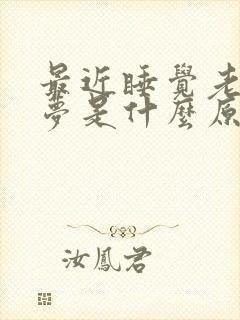 最近睡覺老
夢是什麼原
汝鳳君